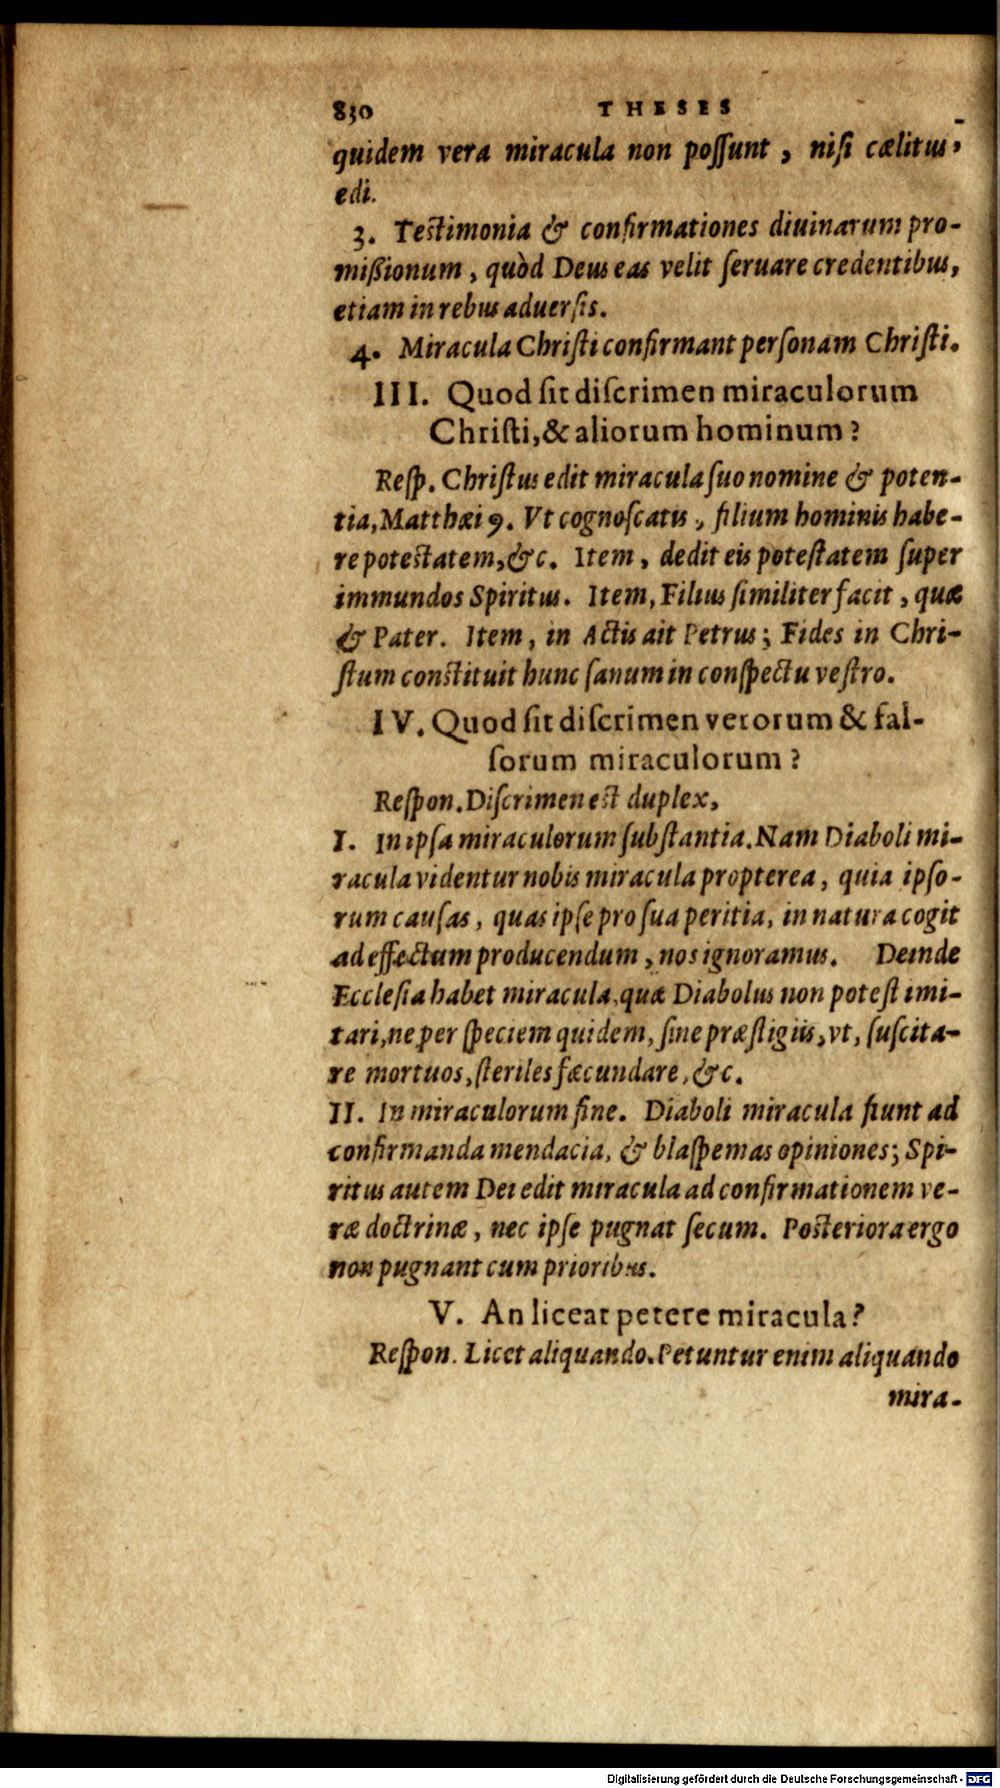 830 THESES
quidem vera miracula non poſſunt, niſi cælitus,
edi.
3. Teſtimonia & confirmationes diuinarum pro-
mißionum, quòd Deus eas velit ſeruare credentibus,
etiam in rebus aduerſis.
4. Miracula Chriſti confirmant perſonam Chriſti.
III. Quod ſit diſcrimen miraculorum
Chriſti, & aliorum hominum?
Reſp. Chriſtus edit miracula ſuo nomine & poten-
tia, Matthæi 9. Vt cognoſcatis, filium hominis habe-
re poteſtatem, &c. Item, dedit eis poteſtatem ſuper
immundos Spiritus. Item, Filius ſimiliter facit, quæ
& Pater. Item, in Actis ait Petrus; Fides in Chri-
ſtum conſtituit hunc ſanum in conſpectu veſtro.
IV. Quod ſit diſcrimen verorum & fal-
ſorum miraculorum?
Reſpon. Diſcrimen eſt duplex,
I. In ipſa miraculorum ſubſtantia. Nam Diaboli mi-
racula videntur nobis miracula propterea, quia ipſo-
rum cauſas, quas ipſe pro ſua peritia, in natura cogit
ad effectum producendum, nos ignoramus. Deinde
Eccleſia habet miracula, quæ Diabolus non poteſt imi-
tari, ne per ſpeciem quidem, ſine præſtigiis, vt, ſuſcita-
re mortuos, ſteriles fæcundare, &c.
II. In miraculorum fine. Diaboli miracula fiunt ad
confirmanda mendacia, & blaſpemas opiniones; Spi-
ritus autem Dei edit miracula ad confirmationem ve-
ræ doctrinæ, nec ipſe pugnat ſecum. Poſteriora ergo
non pugnant cum prioribus.
V. An liceat petere miracula?
Reſpon. Licet aliquando. Petuntur enim aliquando
mira-
Digitalisierung gefördert durch die Deutsche Forschungsgemeinschaft - DFG